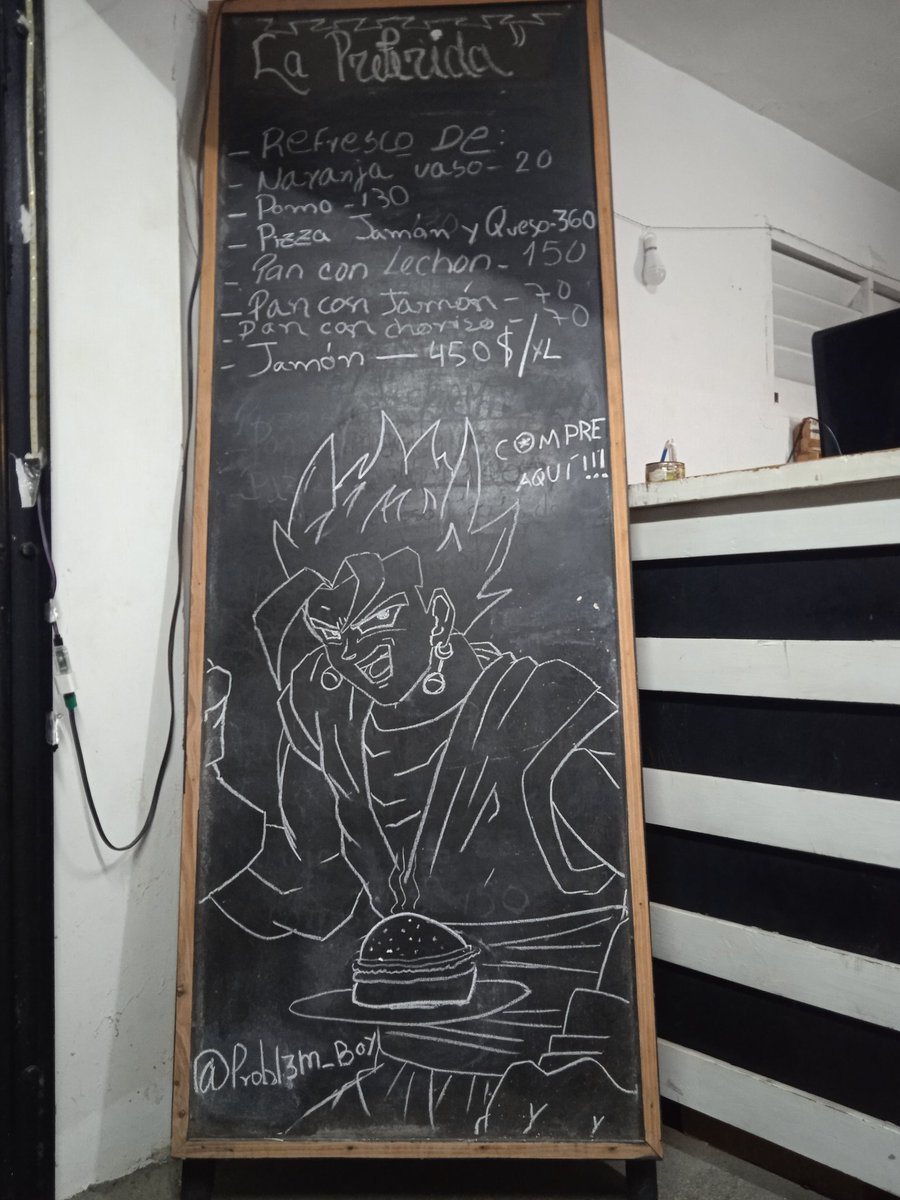 "La Preferida"
- Refresco De:
- Naranja vaso - 20
- Pomo - 130
- Pizza Jamón y Queso - 360
- Pan con Lechon - 150
- Pan con Jamón - 70
- Pan con chorizo - 70
- Jamón — 450$/XL
COMPRE
AQUÍ!!!
@Probl3M_Boy